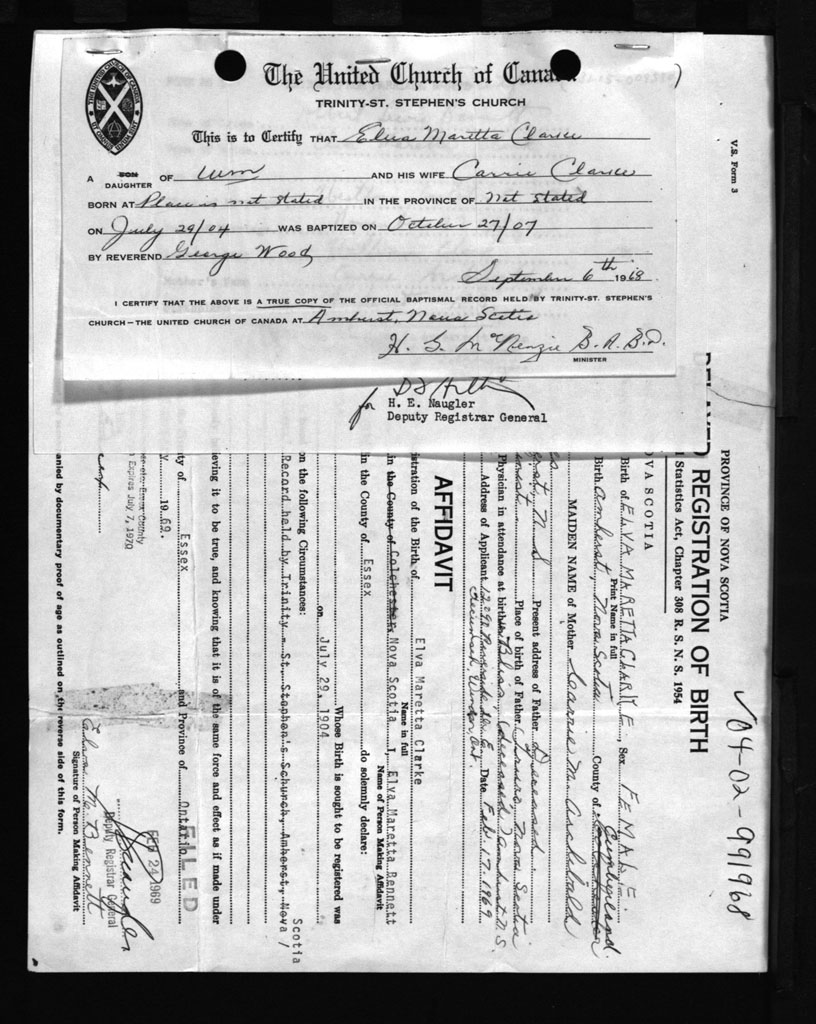 The United Church of Cana
TRINITY-ST. STEPHEN'S CHURCH
This is to Certify THAT Elva Maretta Clarke
A SON DAUGHTER OF Wm AND HIS WIFE Carrie Clarke
BORN AT Place is not stated IN THE PROVINCE OF Not stated
ON July 29/04 WAS BAPTIZED ON October 27/07
BY REVEREND George Wood
September 6th 1968
I CERTIFY THAT THE ABOVE IS A TRUE COPY OF THE OFFICIAL BAPTISMAL RECORD HELD BY TRINITY-ST. STEPHEN'S
CHURCH—THE UNITED CHURCH OF CANADA AT Amherst, Nova Scotia
H. G. McKenzie B.A. B.D.
MINISTER
for H. E. Naugler
Deputy Registrar General
V.S. Form 3
04-02-991968
PROVINCE OF NOVA SCOTIA
DELAYED REGISTRATION OF BIRTH
l Statistics Act, Chapter 308 R. S. N. S. 1954
NOVA SCOTIA
Birth of ELVA MARETTA CLARKE, Sex FEMALE.
Print Name in full
Birth Amherst, Nova Scotia County of Cumberland
MAIDEN NAME of Mother Carrie M. Archibald
N S Present address of Father Deceased
Place of birth of Father Truro, Nova Scotia
Physician in attendance at birth Deceased Amherst N.S.
Address of Applicant 12292 Riverside Dr. E. Date Feb. 17. 1969
Tecumseh, Windsor, Ont.
AFFIDAVIT
istration of the Birth of Elva Maretta Clarke
Name in full
in the County of Colchester Nova Scotia I, Elva Maretta Bennett
Name of Person Making Affidavit
in the County of Essex do solemnly declare:
Whose Birth is sought to be registered was
on July 29, 1904
on the following Circumstances:
Scotia
Record held by Trinity - St. Stephen's Schurch, Amherst, Nova /
ieving it to be true, and knowing that it is of the same force and effect as if made under
ty of Essex and Province of Ontario
y 19 69.
FILED
FEB 24 1969
Deputy Registrar General
Essex County
n Expires July 7, 1970
Elva M. Bennett
Signature of Person Making Affidavit
anied by documentary proof of age as outlined on the reverse side of this form.